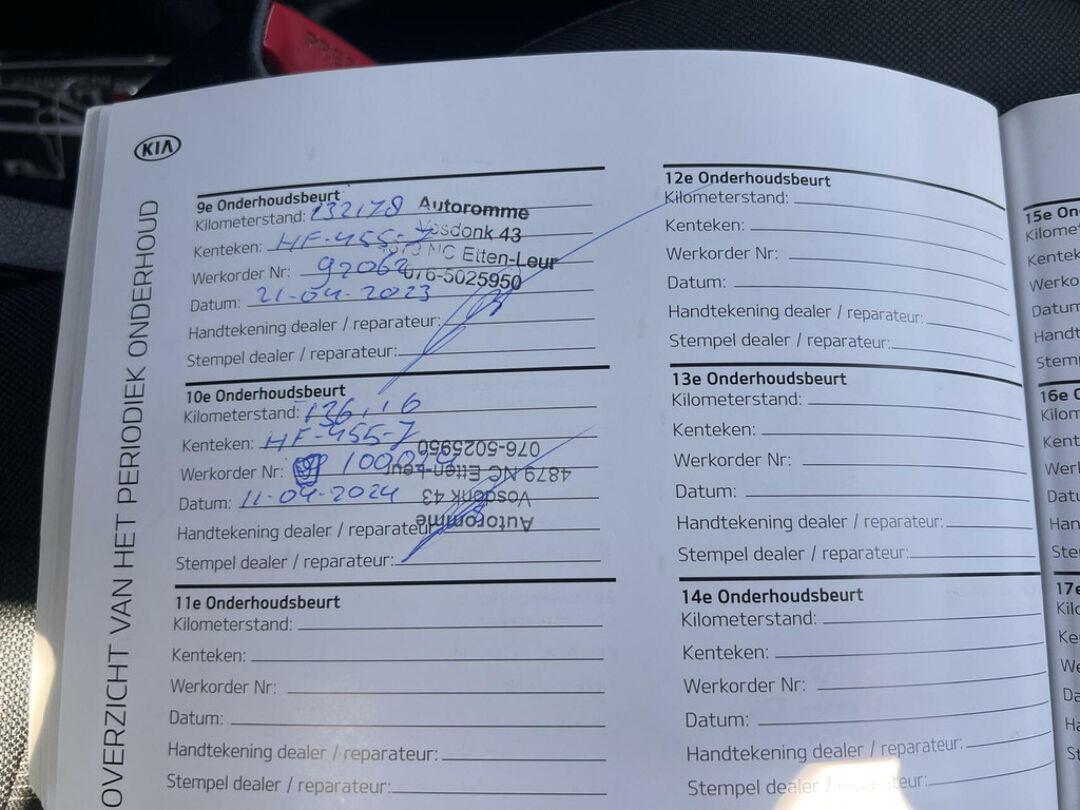 KIA
OVERZICHT VAN HET PERIODIEK ONDERHOUD
9e Onderhoudsbeurt
Kilometerstand: 132178
Kenteken: HF-455-
Werkorder Nr: 92062
Datum: 21-04-2023
Handtekening dealer / reparateur:
Stempel dealer / reparateur:
Autoromme
Vosdonk 43
4879 NC Etten-Leur
076-5025950
10e Onderhoudsbeurt
Kilometerstand:
Kenteken: HF-455-
Werkorder Nr:
Datum: 11-04-2024
Handtekening dealer / reparateur:
Stempel dealer / reparateur:
Autoromme
Vosdonk 43
4879 NC Etten-Leur
076-5025950
11e Onderhoudsbeurt
Kilometerstand:
Kenteken:
Werkorder Nr:
Datum:
Handtekening dealer / reparateur:
Stempel dealer / reparateur:
12e Onderhoudsbeurt
Kilometerstand:
Kenteken:
Werkorder Nr:
Datum:
Handtekening dealer / reparateur:
Stempel dealer / reparateur:
13e Onderhoudsbeurt
Kilometerstand:
Kenteken:
Werkorder Nr:
Datum:
Handtekening dealer / reparateur:
Stempel dealer / reparateur:
14e Onderhoudsbeurt
Kilometerstand:
Kenteken:
Werkorder Nr:
Datum:
Handtekening dealer / reparateur:
Stempel dealer / reparateur:
15e On
Kilome
Kentek
Werko
Datum
Handt
Stem
16e O
Kilom
Kent
Werk
Datu
Han
Ste
17e
Kilo
Ke
We
Da
Ha
St